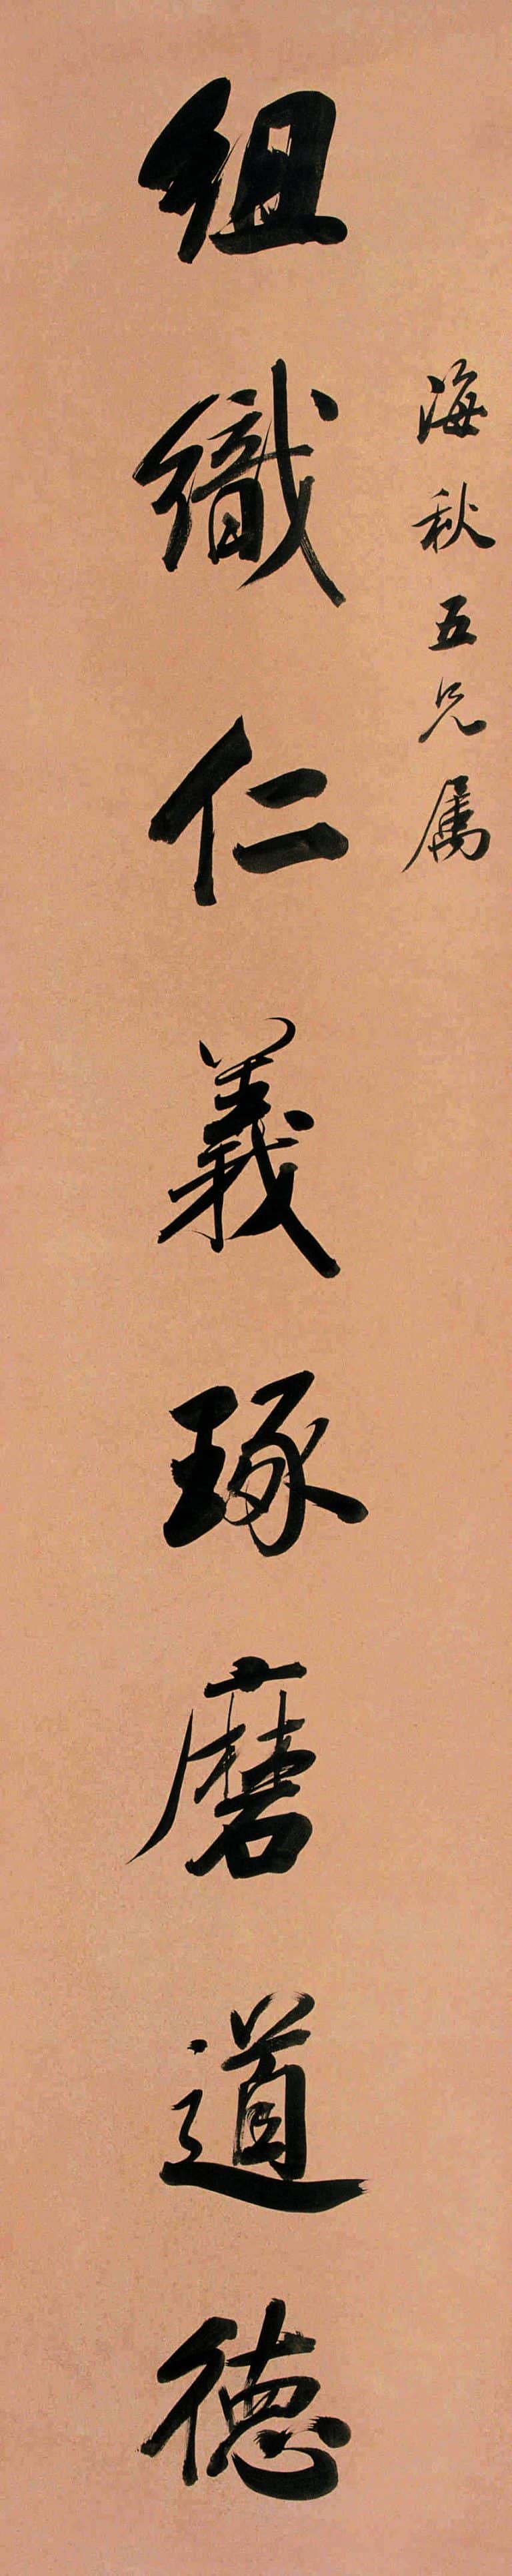 海秋五兄属
組織仁義琢磨道德